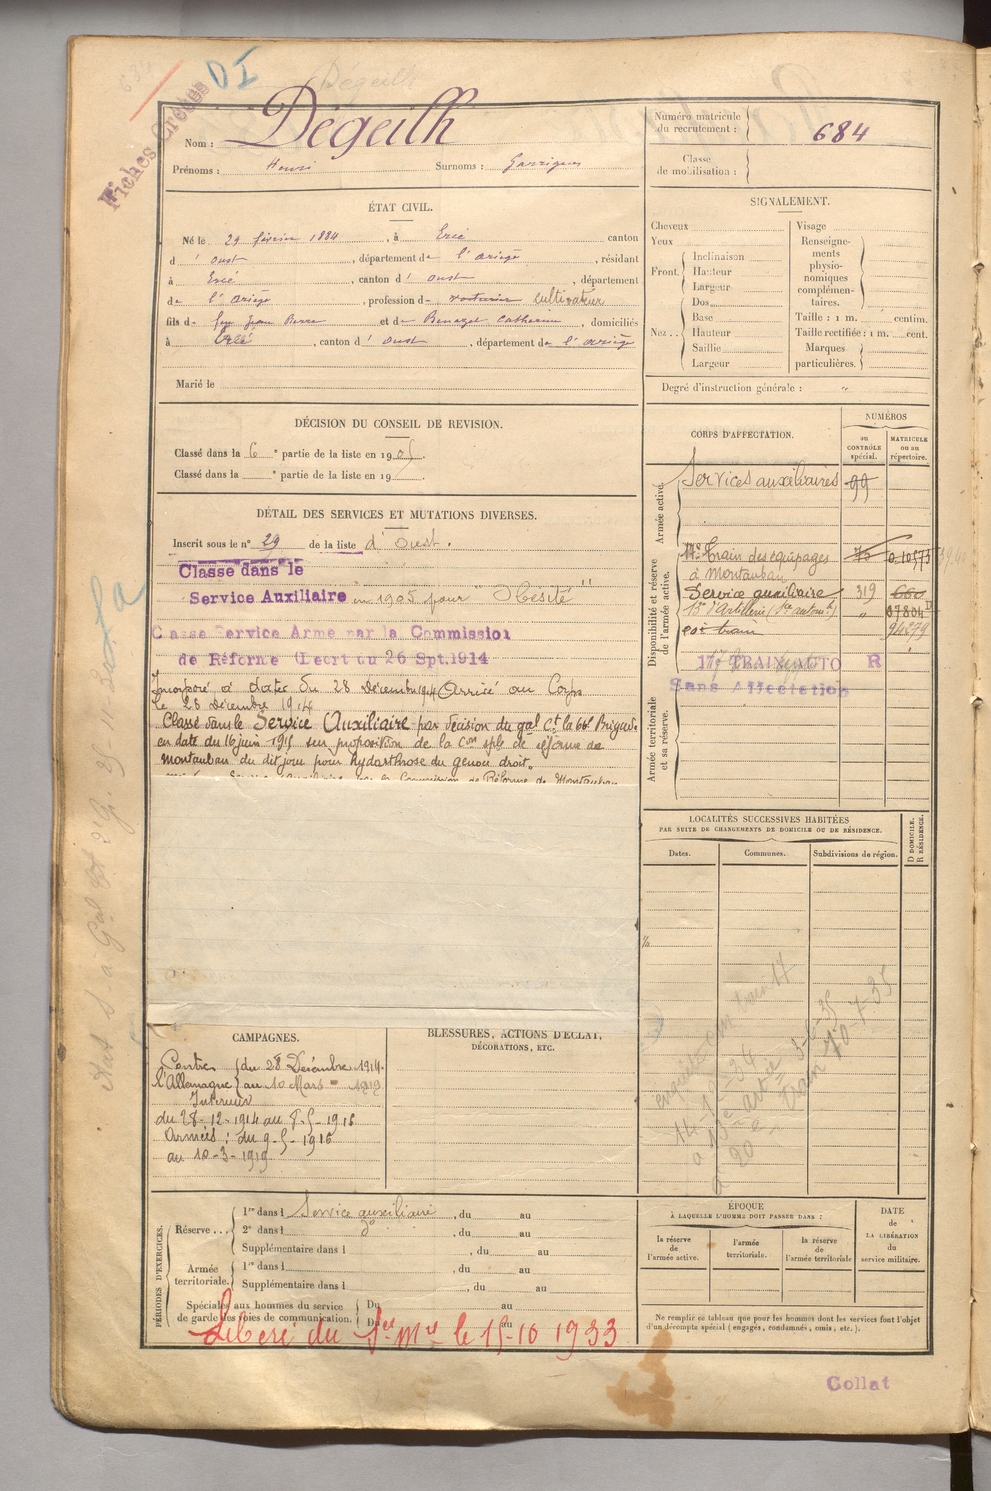 DI
Fiches Créées
Nom : Dégeilh
Prénoms : Henri Surnoms : Garrigues
Numéro matricule du recrutement : 684
Classe de mobilisation :
ÉTAT CIVIL.
Né le 29 février 1884, à Ercé canton
d' Oust, département de l'ariège, résidant
à Ercé, canton d' Oust, département
de l'ariège, profession de voiturier cultivateur
fils de feu Jean Pierre et de Benazet Catherine, domiciliés
à Ercé, canton d' Oust, département de l'ariège
Marié le
SIGNALEMENT.
Cheveux
Yeux
Front. Inclinaison
Hauteur
Largeur
Nez .. Dos
Base
Hauteur
Saillie
Largeur
Visage
Renseigne-
ments
physio-
nomiques
complémen-
taires.
Taille : 1 m. centim.
Taille rectifiée : 1 m. cent.
Marques
particulières.
Degré d'instruction générale : "
DÉCISION DU CONSEIL DE REVISION.
Classé dans la 6e partie de la liste en 1905.
Classé dans la e partie de la liste en 19 .
DÉTAIL DES SERVICES ET MUTATIONS DIVERSES.
Inscrit sous le n° 29 de la liste d'Oust.
Classé dans le
Service Auxiliaire en 1905 pour "Obésité"
Classé Service Armé par la Commission
de Réforme (Décret du 26 Spt. 1914
Incorporé à dater du 28 Décembre 1914 Arrivé au Corps
le 28 Décembre 1914
Classé dans le Service Auxiliaire par décision du gal Ct la 66e Brigade
en date du 16 juin 1915 sur proposition de la Con sple de réforme de
Montauban du dit jour pour hydarthrose du genou droit.
Service Auxiliaire par la Commission de Réforme de Montauban
CORPS D'AFFECTATION.
NUMÉROS
au CONTRÔLE spécial.
MATRICULE ou au répertoire.
Armée active.
Services auxiliaires 99
Disponibilité et réserve de l'armée active.
17e Train des équipages 75 010573
à Montauban
Service auxiliaire 319 660
13e d'Artillerie (Sce autom.) " 07804
20e train 94279
17e TRAIN AUTO R
Sans Affectation
Armée territoriale et sa réserve.
LOCALITÉS SUCCESSIVES HABITÉES
PAR SUITE DE CHANGEMENTS DE DOMICILE OU DE RÉSIDENCE.
Dates. Communes. Subdivisions de région.
D DOMICILE. R RÉSIDENCE.
CAMPAGNES.
Contre l'Allemagne du 28 Décembre 1914
au 10 Mars 1919
Intérieur
du 28-12-1914 au 8-5-1916
Armées : du 9-5-1916
au 10-3-1919
BLESSURES, ACTIONS D'ÉCLAT,
DÉCORATIONS, ETC.
PÉRIODES D'EXERCICES.
Réserve ... 1re dans l Service auxiliaire, du au
2e dans l do, du au
Supplémentaire dans l, du au
Armée territoriale. 1re dans l, du au
Supplémentaire dans l, du au
Spéciales aux hommes du service
de garde des voies de communication. Du au
Du au
Libéré du Sce Mre le 15-10 1933
ÉPOQUE
À LAQUELLE L'HOMME DOIT PASSER DANS :
la réserve de l'armée active.
l'armée territoriale.
la réserve de l'armée territoriale
DATE de LA LIBÉRATION du service militaire.
Ne remplir ce tableau que pour les hommes dont les services font l'objet
d'un décompte spécial (engagés, condamnés, omis, etc.).
Collat